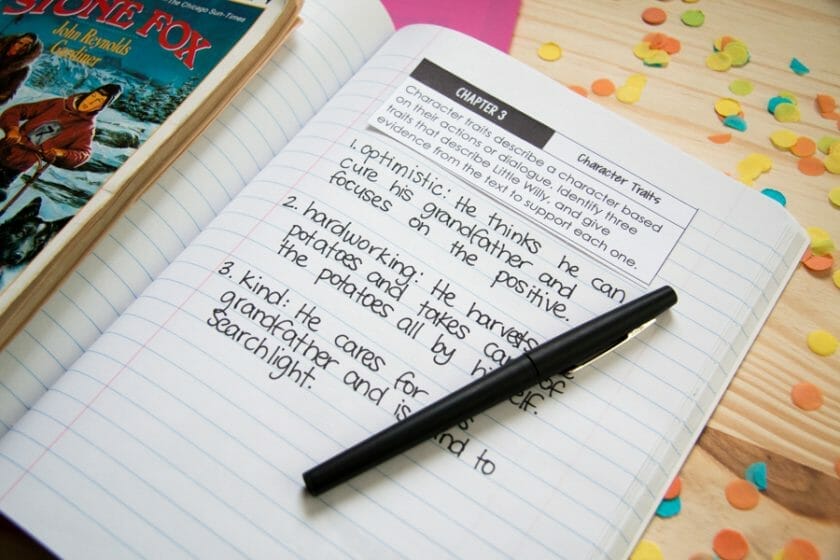 The Chicago Sun-Times
STONE FOX
John Reynolds
Gardiner
CHAPTER 3
Character Traits
Character traits describe a character based
on their actions or dialogue. Identify three
traits that describe Little Willy, and give
evidence from the text to support each one.
1. optimistic: He thinks he can
cure his grandfather and
focuses on the positive.
2. hardworking: He harvests
potatoes and takes of
the potatoes all by
3. Kind: He cares for
grandfather and is to
Searchlight.